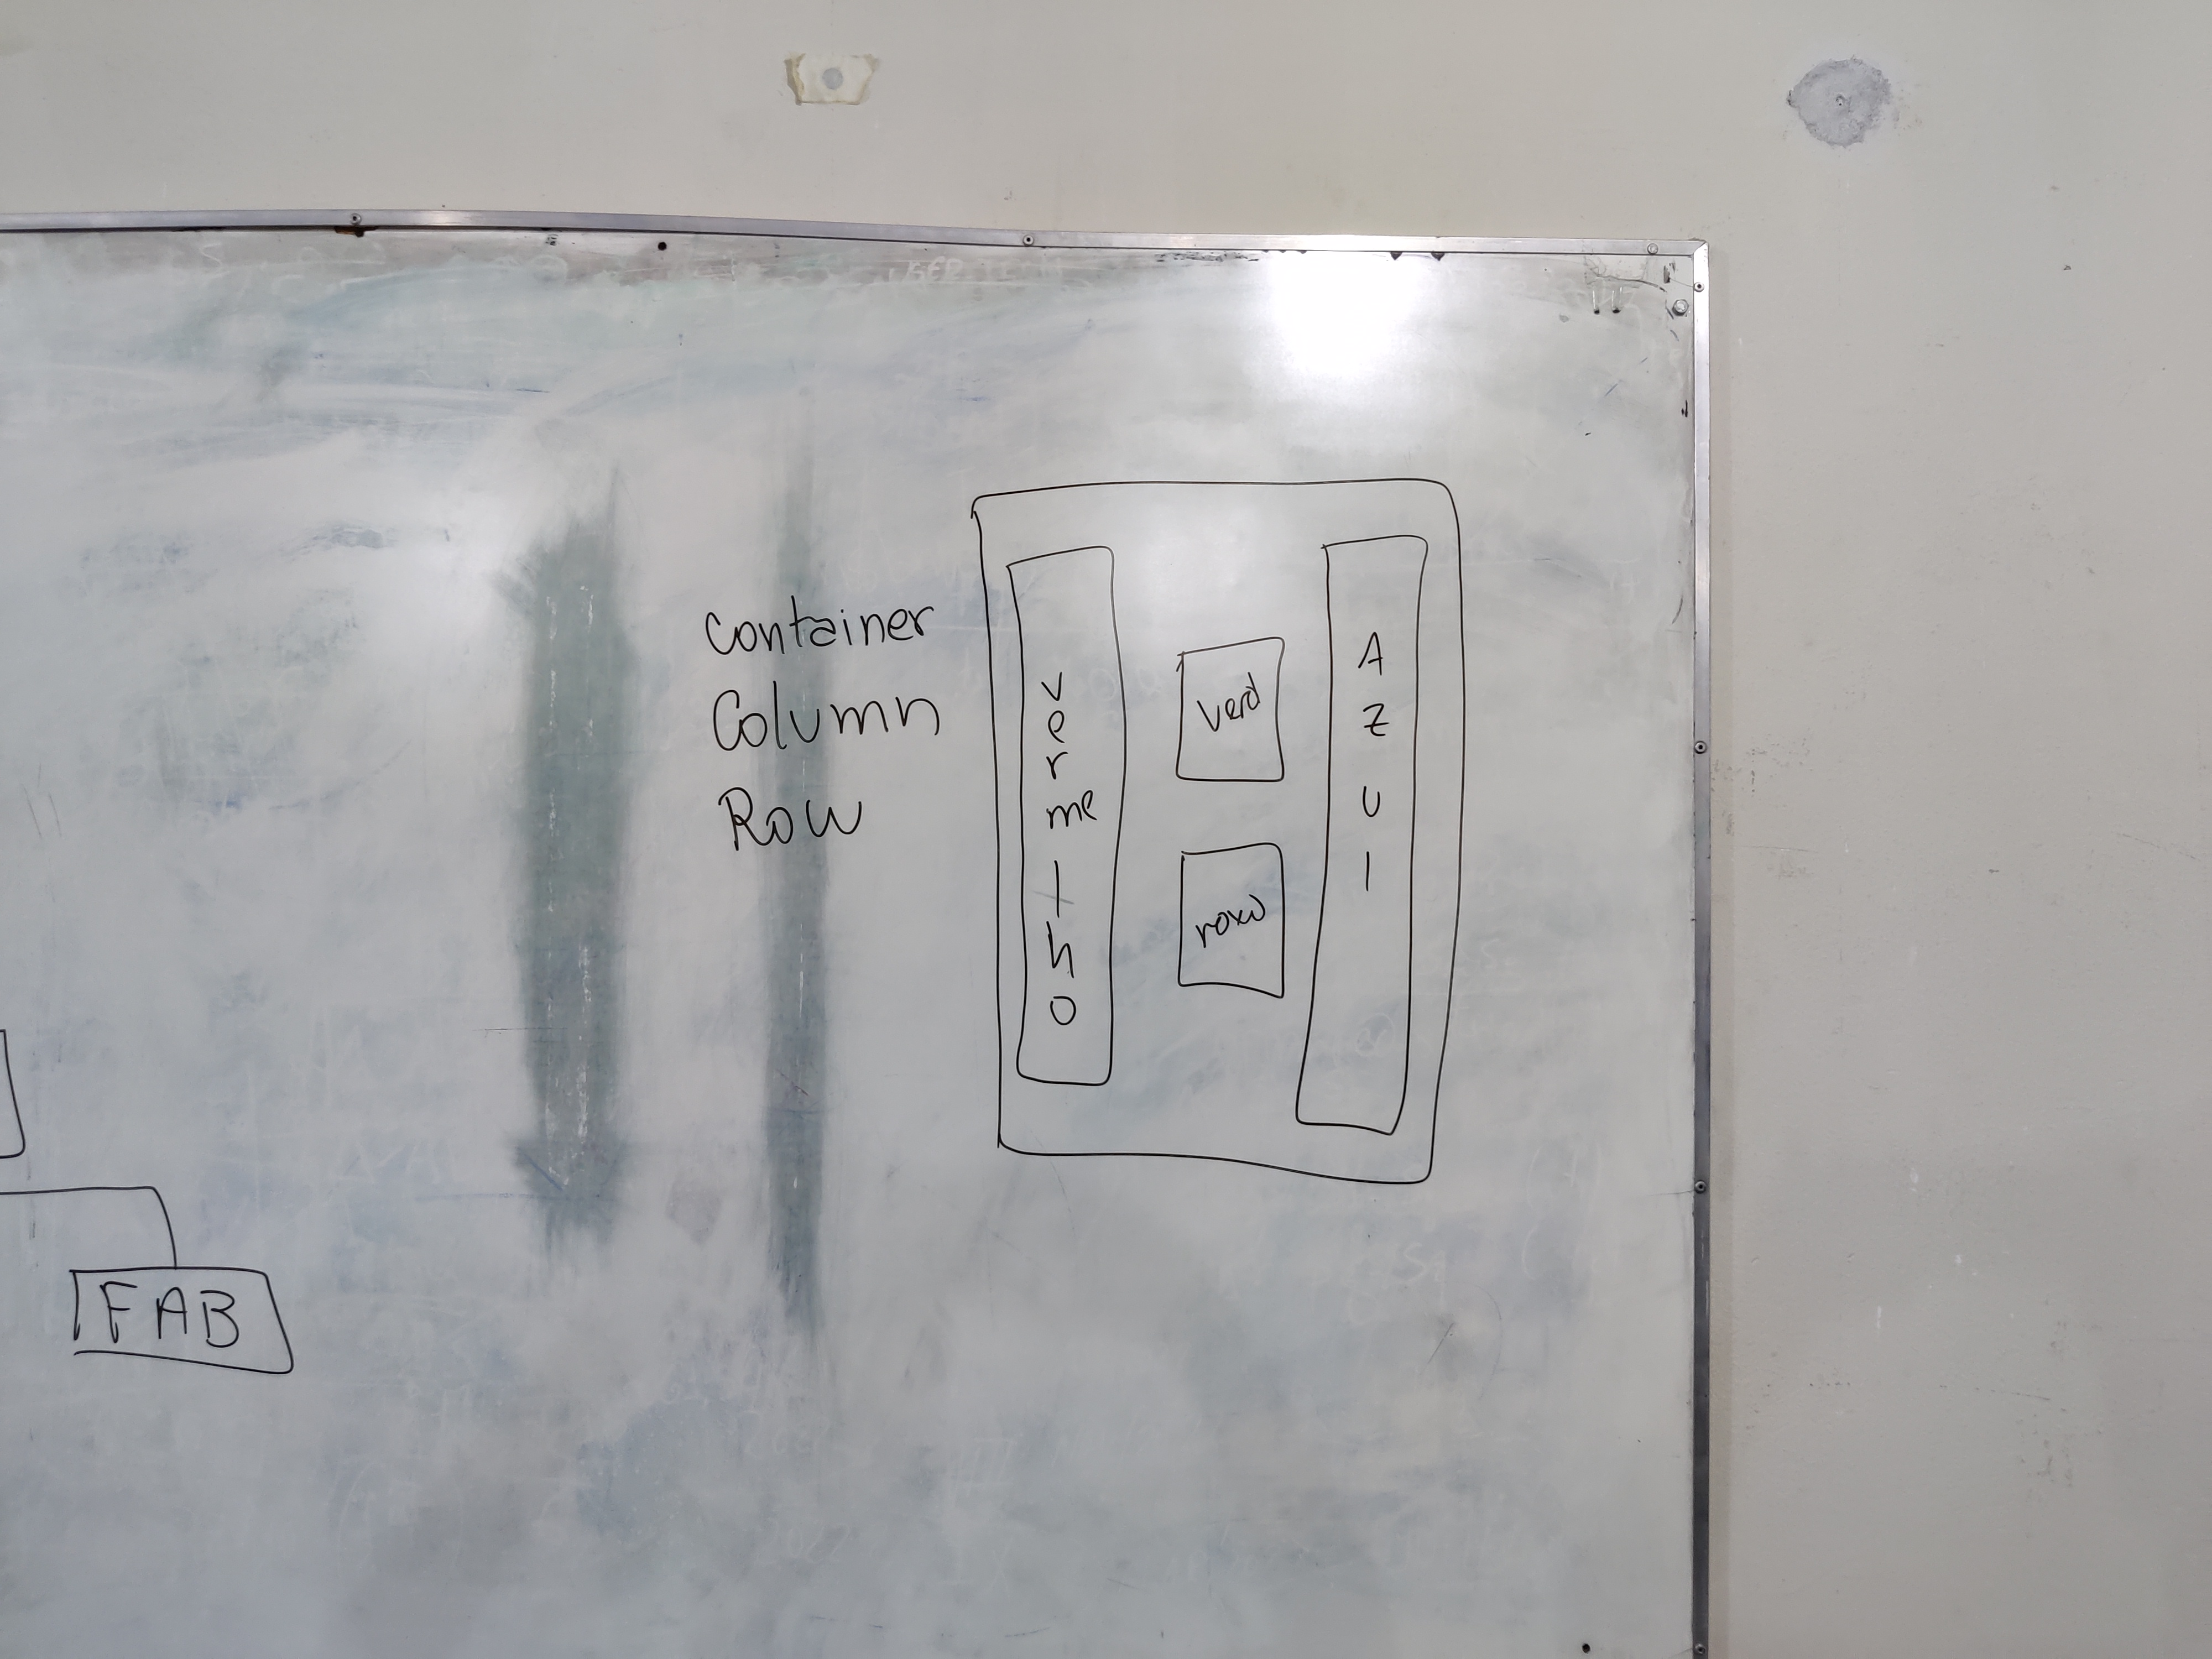 Container
Column
Row
vermelho
verd
roxo
AZUl
FAB